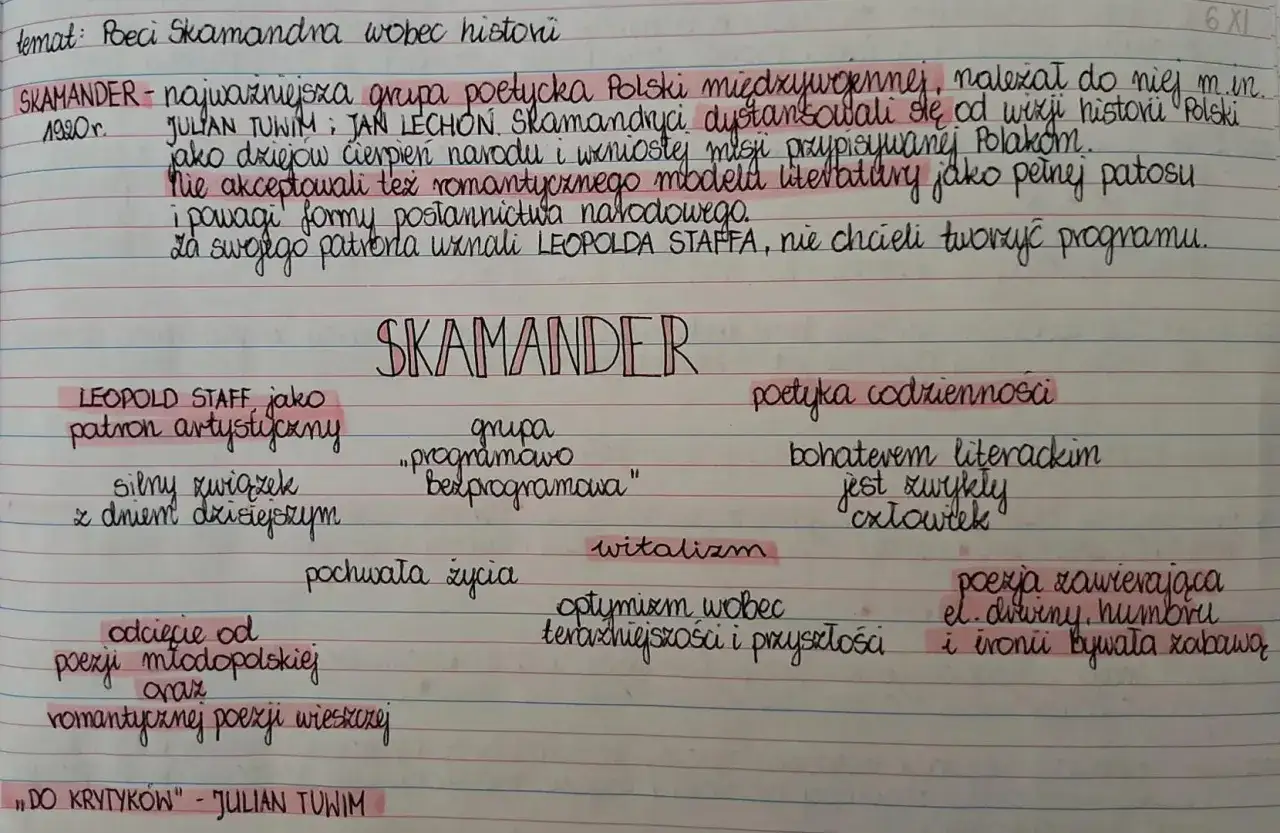 6 XI
temat: Poeci Skamandra wobec historii
SKAMANDER - najważniejsza grupa poetycka Polski międzywojennej, należał do niej m.in.
1920r. JULIAN TUWIM i JAN LECHOŃ. Skamandryci dystansowali się od wizji historii Polski
jako dziejów cierpień narodu i wzniosłej misji przypisywanej Polakom.
Nie akceptowali też romantycznego modelu literatury jako pełnej patosu
i powagi formy posłannictwa narodowego.
Za swojego patrona uznali LEOPOLDA STAFFA, nie chcieli tworzyć programu.
SKAMANDER
LEOPOLD STAFF jako
patron artystyczny
grupa
„programowo
bezprogramowa"
poetyka codzienności
silny związek
z dniem dzisiejszym
bohaterem literackim
jest zwykły
człowiek
witalizm
pochwała życia
optymizm wobec
teraźniejszości i przyszłości
poezja zawierająca
el. drwiny, humoru
i ironii bywała zabawą
odcięcie od
poezji młodopolskiej
oraz
romantycznej poezji wieszczej
„DO KRYTYKÓW" - JULIAN TUWIM